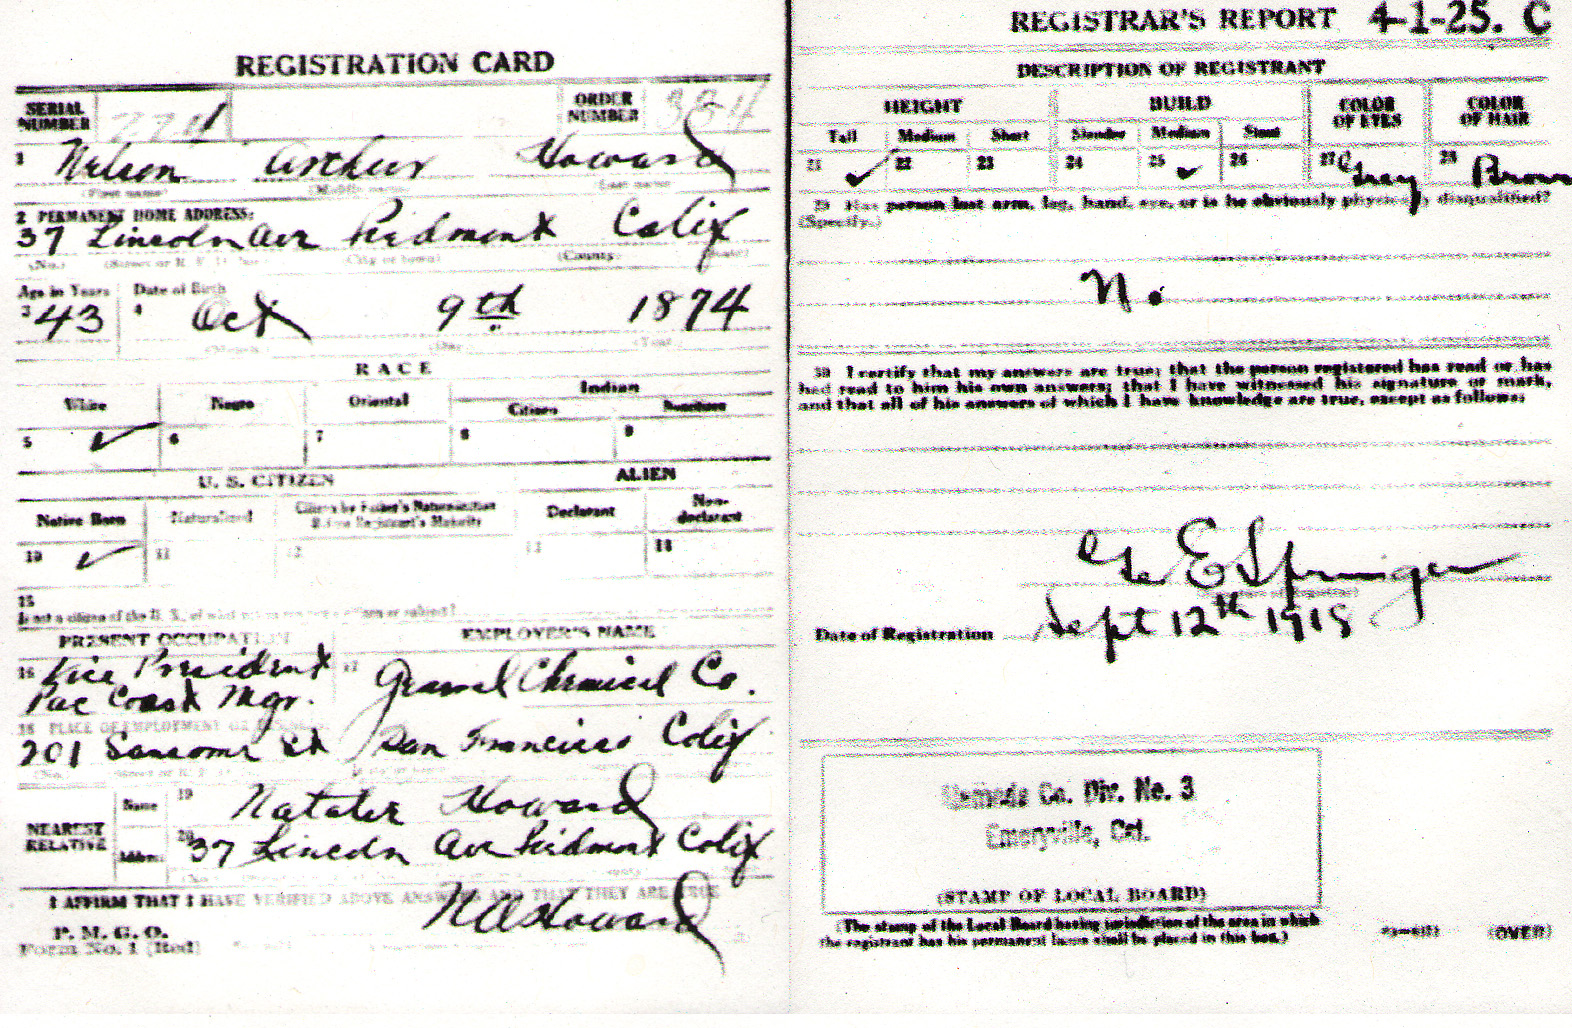 REGISTRATION CARD
SERIAL NUMBER
ORDER NUMBER
1 Nelson Arthur Howard
(First name) (Middle name) (Last name)
2 PERMANENT HOME ADDRESS:
37 Lincoln Ave Piedmont Calif
(No.) (City or town) (County) (State)
Age in Years Date of Birth
3 43 4 Oct 9th 1874
(Month) (Day) (Year)
RACE
White Negro Oriental Indian
Citizen Noncitizen
5 ✓ 6 7 8 9
U. S. CITIZEN ALIEN
Native Born Naturalized Citizen by Father's Naturalization Before Registrant's Majority Declarant Non-declarant
10 ✓ 11 12 13 14
15
If not a citizen of the U. S., of what nation are you a citizen or subject?
PRESENT OCCUPATION EMPLOYER'S NAME
16 Vice President 17
Pac Coast Mgr. Chemical Co.
18 PLACE OF EMPLOYMENT OR BUSINESS:
201 Sansome St San Francisco Calif
NEAREST RELATIVE
Name 19 Howard
Address 20 37 Lincoln Ave Piedmont Calif
I AFFIRM THAT I HAVE VERIFIED ABOVE ANSWERS AND THAT THEY ARE TRUE
P. M. G. O.
Form No. 1 (Red)
N A Howard
REGISTRAR'S REPORT 4-1-25. C
DESCRIPTION OF REGISTRANT
HEIGHT BUILD COLOR OF EYES COLOR OF HAIR
Tall Medium Short Slender Medium Stout
21 ✓ 22 23 24 25 ✓ 26 27 Gray 28 Brown
29 Has person lost arm, leg, hand, eye, or is he obviously physically disqualified?
(Specify.)
No
30 I certify that my answers are true; that the person registered has read or has
had read to him his own answers; that I have witnessed his signature or mark,
and that all of his answers of which I have knowledge are true, except as follows:
E Springer
Date of Registration Sept 12th 1918
Alameda Co. Div. No. 3
Emeryville, Cal.
(STAMP OF LOCAL BOARD)
(The stamp of the Local Board having jurisdiction of the area in which
the registrant has his permanent home shall be placed in this box.)
(OVER)